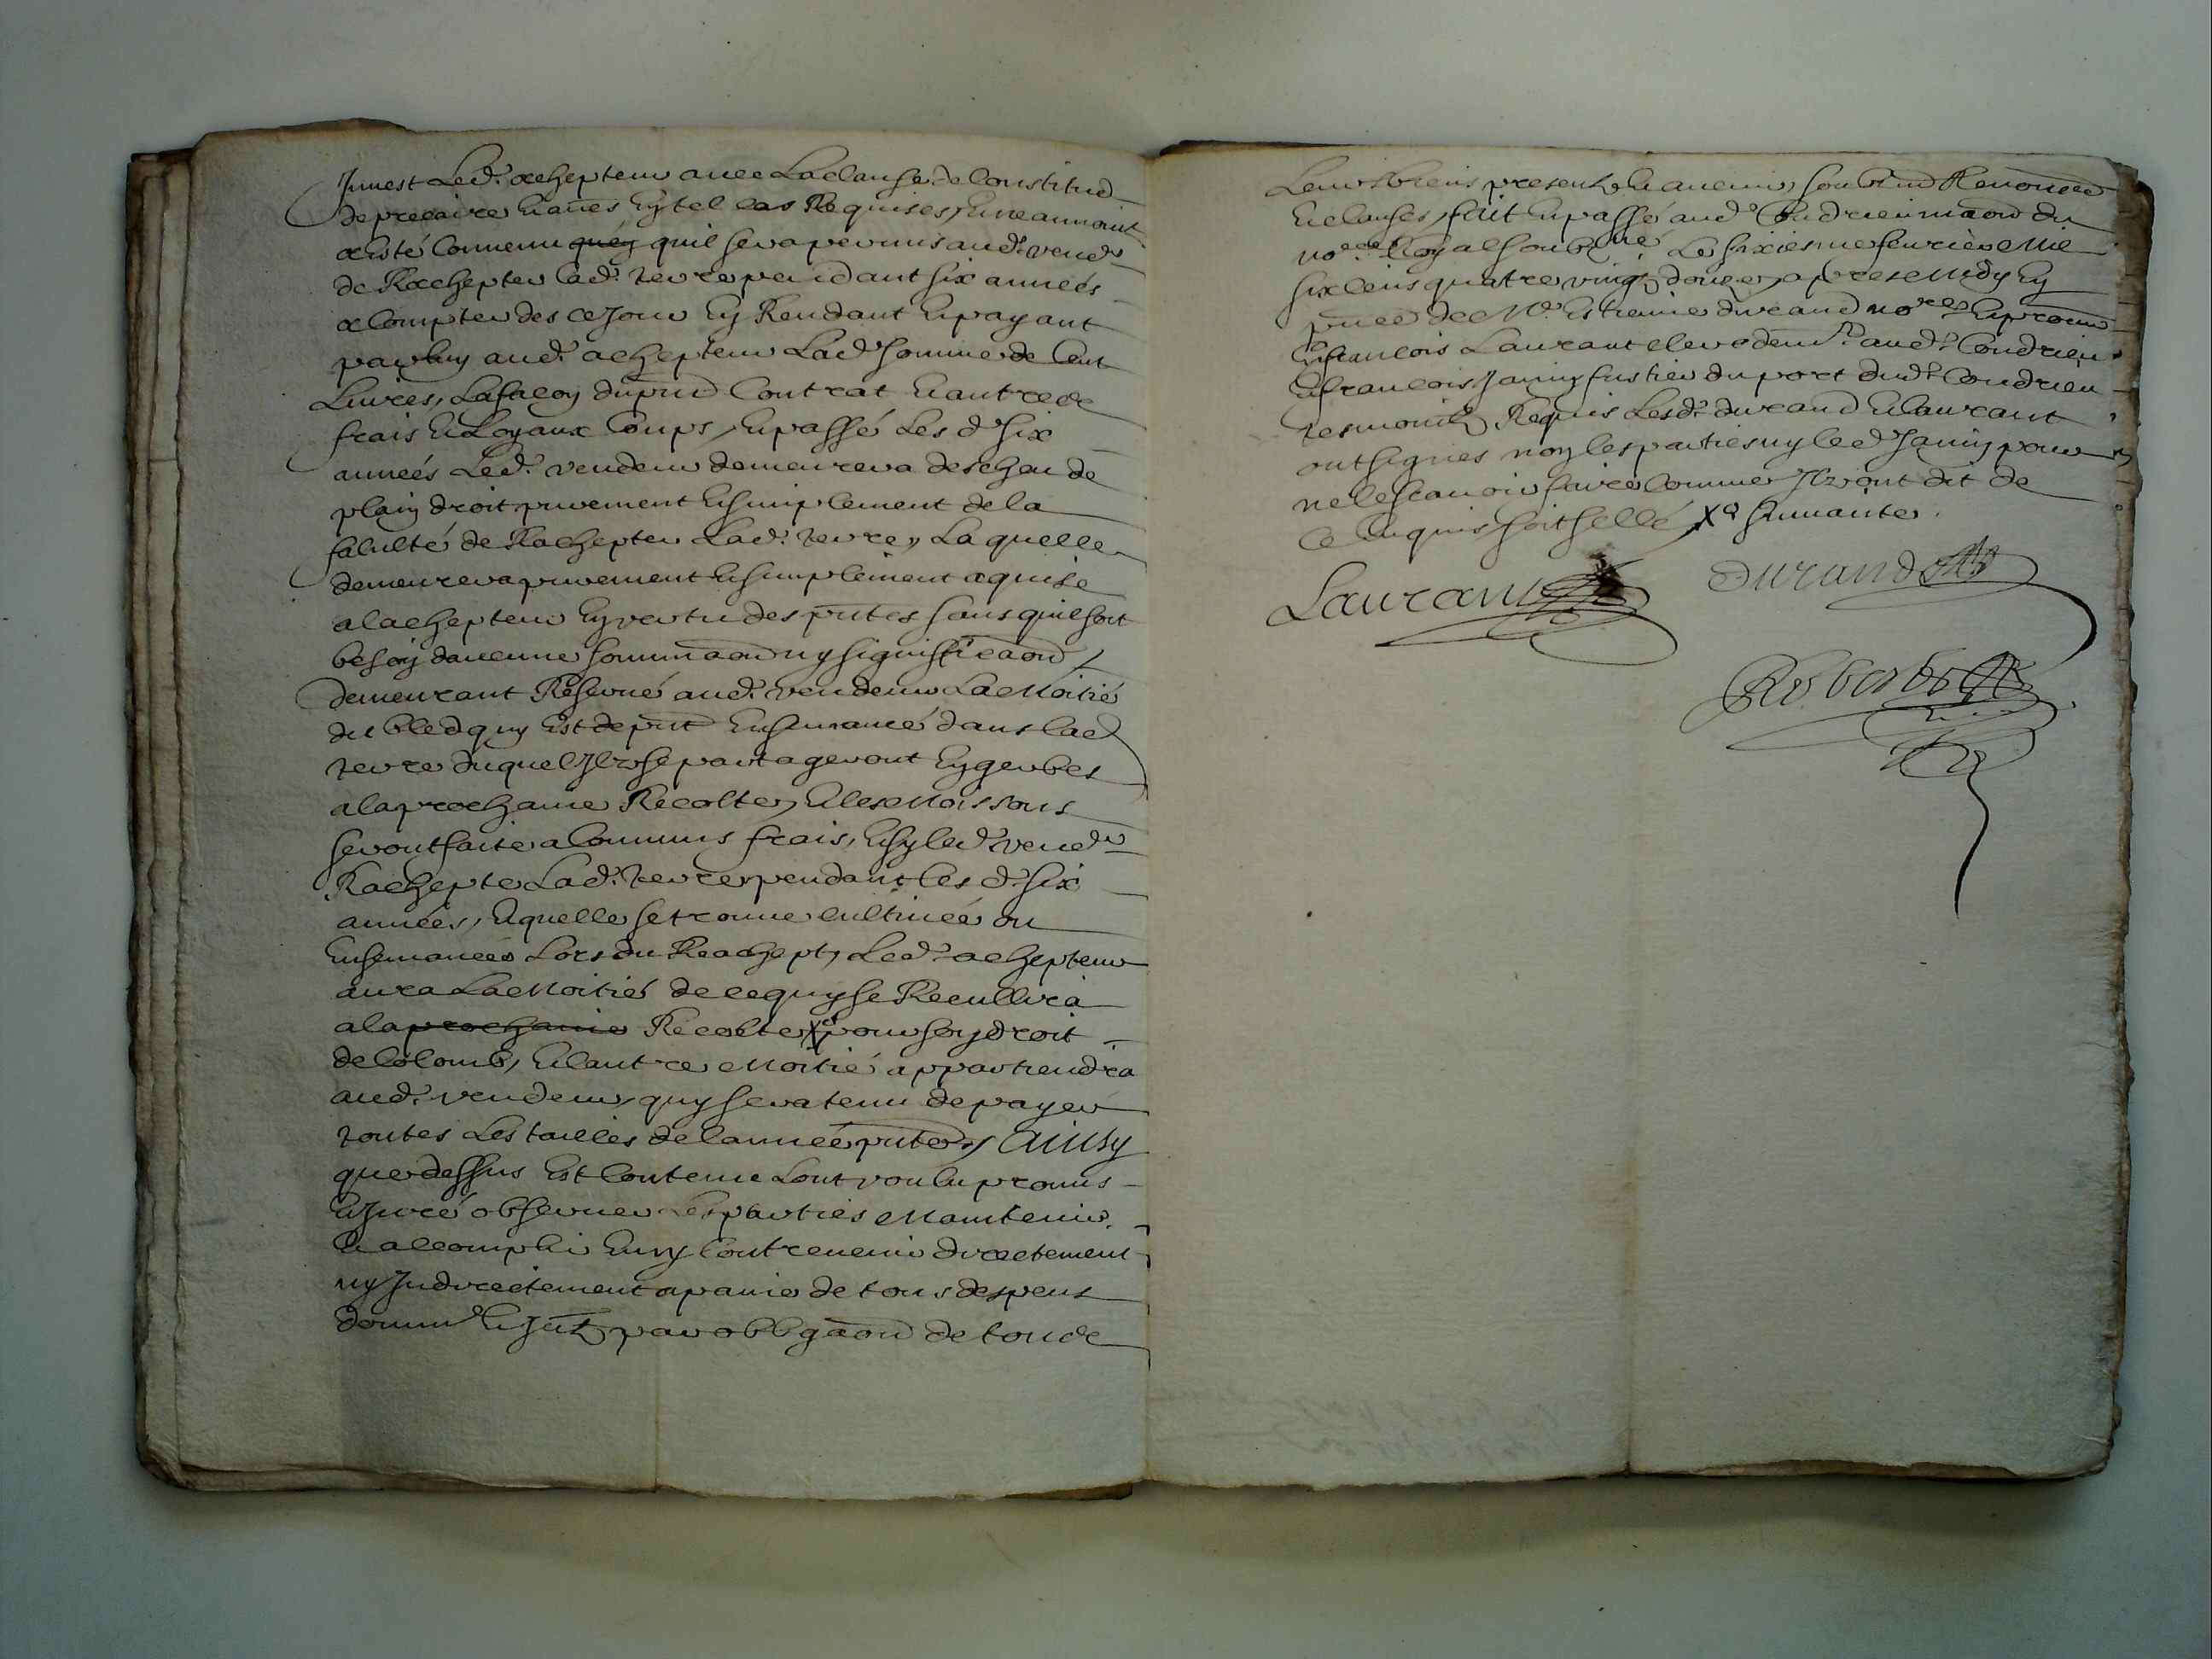 Jnuest Led. achepteur auec La clause de Constitu͠o
de precaire Et au͠es En tel cas Requises, Et neanmoint
a esté Conuenu quil sera permis aud. vendr
de Rachepter lad. terre pendant six années
a Compter des ce Jour En Rendant Et payant
par luy aud. achepteur Lad. somme de Cent
Liures, La facon du pn͠t Contrat Et autre de
frais Et Loyaux Coups, Et passé Les d. six
années Led. vendeur demeurera descheu de
plain droit purement Et simplement de la
faculté de Rachepter Lad. terre, La quelle
demeurera purement Et simplement aquise
a lachepteur En vertu des pn͠tes sans quil soit
besoin daucune somma͠on ny significa͠on,
demeurant Reserué aud. vendeur La Moitié
du bled quy Est de pn͠t Ensemancé dans lad
terre duquel Jlz se partageront En gerbes
a la prochaine Recolte, Et les Moissons
seront faite a Communs frais, Et sy led. vendr
Rachepte Lad. terre pendant les d. six
années, Et quelle se trouue cultiuée ou
Ensemancée Lors du Reachept, Led. achepteur
aura La Moitié de ce quy se Recullira
a la prochaine Recolte X pour son droit
de Colomb, Et lautre Moitié appartiendra
aud. vendeur, quy sera tenu de payer
toutes Les tailles de lannée pn͠te, Ainsy
que dessus Est Contenu Lont voulu promis
Et Juré obseruer Les parties Maintenir
Et accomplir Et ny Contreuenir directement
ny Jndirectement a paine de tous despens
domm. Et Jn͠tz par obbga͠on de tous
Leurs biens presentz Et auenir, soubm͠on Renonce͠on
Et clauses, fait Et passé aud. Condrieu maison du
nore. Royal soubz.né Le sixiesme feurier Mil
six Cens quatre vingtz douze, apres Midy En
pn͠ce de Me. Estienne durand nore. Et procur
francois Laurant clerc demt. aud. Condrieu
Et francois Janin fustier du port dud. Condrieu
tesmointz Requis Lesd. durand Et laurant
ont signes non les parties ny led Janin pour
ne le scauoir faire Comme Jlz ont dit de
ce Enquis soit sellé X suiuante.
Laurant
Durand